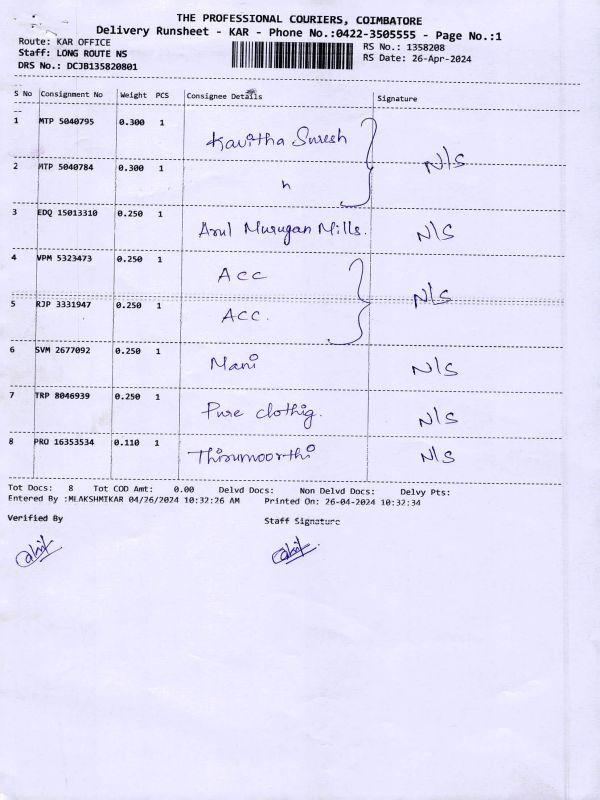 THE PROFESSIONAL COURIERS, COIMBATORE
Delivery Runsheet - KAR - Phone No.:0422-3505555 - Page No.:1
Route: KAR OFFICE RS No.: 1358208
Staff: LONG ROUTE NS RS Date: 26-Apr-2024
DRS No.: DCJB135820801
S No Consignment No Weight PCS Consignee Details Signature
1 MTP 5040795 0.300 1 Kavitha Suresh
2 MTP 5040784 0.300 1 N/S
3 EDQ 15013310 0.250 1 Arul Murugan Mills. N/S
4 VPM 5323473 0.250 1 Acc
5 RJP 3331947 0.250 1 Acc. N/S
6 SVM 2677092 0.250 1 Mani N/S
7 TRP 8046939 0.250 1 Pure clothig. N/S
8 PRO 16353534 0.110 1 Thirumoorthi N/S
Tot Docs: 8 Tot COD Amt: 0.00 Delvd Docs: Non Delvd Docs: Delvy Pts:
Entered By :MLAKSHMIKAR 04/26/2024 10:32:26 AM Printed On: 26-04-2024 10:32:34
Verified By Staff Signature